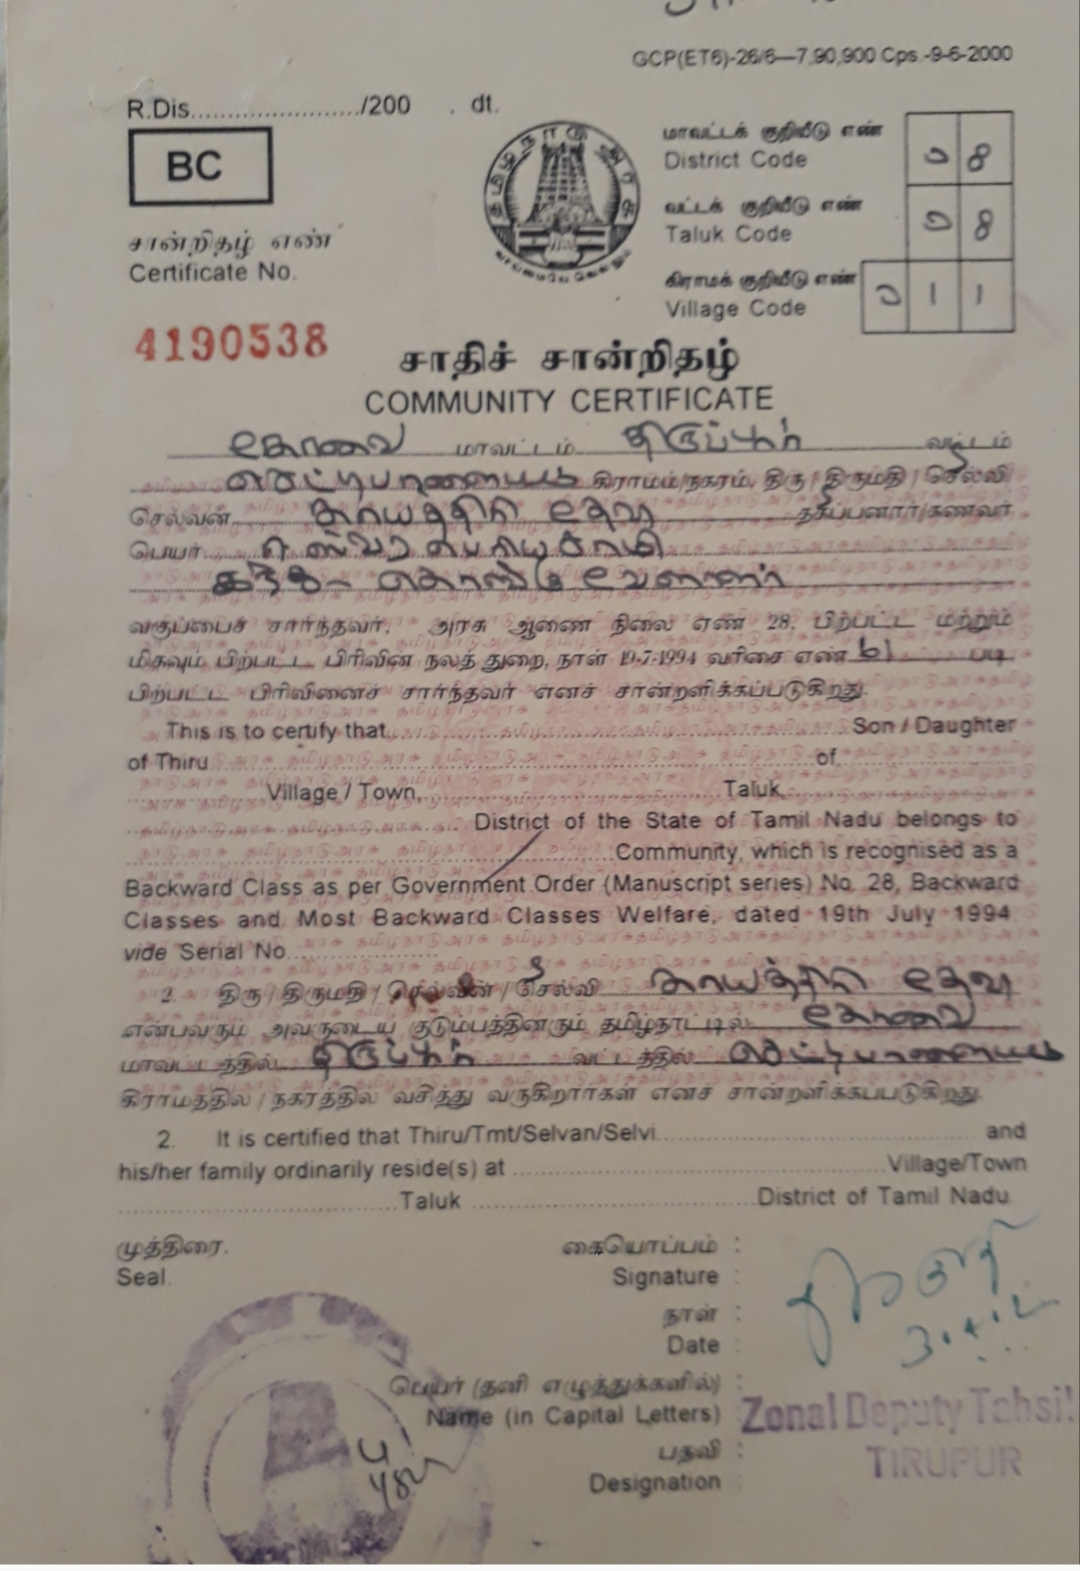 GCP(ET6)-26/6—7,90,900 Cps.-9-6-2000
R.Dis......................../200 . dt.
BC
தமிழ்நாடு அரசு
வாய்மையே வெல்லும்
மாவட்டக் குறியீடு எண்
District Code 08
வட்டக் குறியீடு எண்
Taluk Code 08
கிராமக் குறியீடு எண்
Village Code 011
சான்றிதழ் எண்
Certificate No.
4190538
சாதிச் சான்றிதழ்
COMMUNITY CERTIFICATE
கோவை மாவட்டம் திருப்பூர் வட்டம்
செட்டிபாளையம் கிராமம்/நகரம், திரு / திருமதி / செல்வி
செல்வன் காயத்திரி தேவி தகப்பனார்/கணவர்
பெயர்
கொங்கு வேளாளர்
வகுப்பைச் சார்ந்தவர். அரசு ஆணை நிலை எண் 28, பிற்பட்ட மற்றும்
மிகவும் பிற்பட்ட பிரிவின நலத் துறை, நாள் 19-7-1994 வரிசை எண் படி
பிற்பட்ட பிரிவினைச் சார்ந்தவர் எனச் சான்றளிக்கப்படுகிறது.
This is to certify that.................... Son / Daughter
of Thiru.................... of....................
Village / Town,.................... Taluk....................
.................... District of the State of Tamil Nadu belongs to
.................... Community, which is recognised as a
Backward Class as per Government Order (Manuscript series) No. 28, Backward
Classes and Most Backward Classes Welfare, dated 19th July 1994
vide Serial No....................
2. திரு / திருமதி / செல்வன் / செல்வி காயத்திரி தேவி
என்பவரும் அவருடைய குடும்பத்தினரும் தமிழ்நாட்டில் கோவை
மாவட்டத்தில் திருப்பூர் வட்டத்தில் செட்டிபாளையம்
கிராமத்தில் / நகரத்தில் வசித்து வருகிறார்கள் எனச் சான்றளிக்கப்படுகிறது.
2. It is certified that Thiru/Tmt/Selvan/Selvi.................... and
his/her family ordinarily reside(s) at .................... Village/Town
.................... Taluk .................... District of Tamil Nadu
முத்திரை.
Seal.
கையொப்பம் :
Signature :
நாள் :
Date :
பெயர் (தனி எழுத்துக்களில்) :
Name (in Capital Letters) :
Zonal Deputy Tahsil
TIRUPUR
பதவி :
Designation :